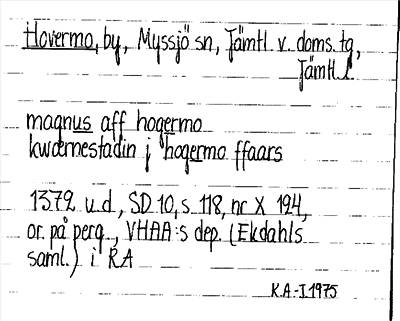 Hovermo, by, Myssjö sn, Jämtl. v. doms. tg,
Jämtl. l.
magnus aff hogermo
kwærnestadin j hogermo ffaars
1379 u.d., SD 10, s. 118, nr X 194,
or. på perg., VHAA:s dep. (Ekdahls
saml.) i RA
K.A.-I.1975